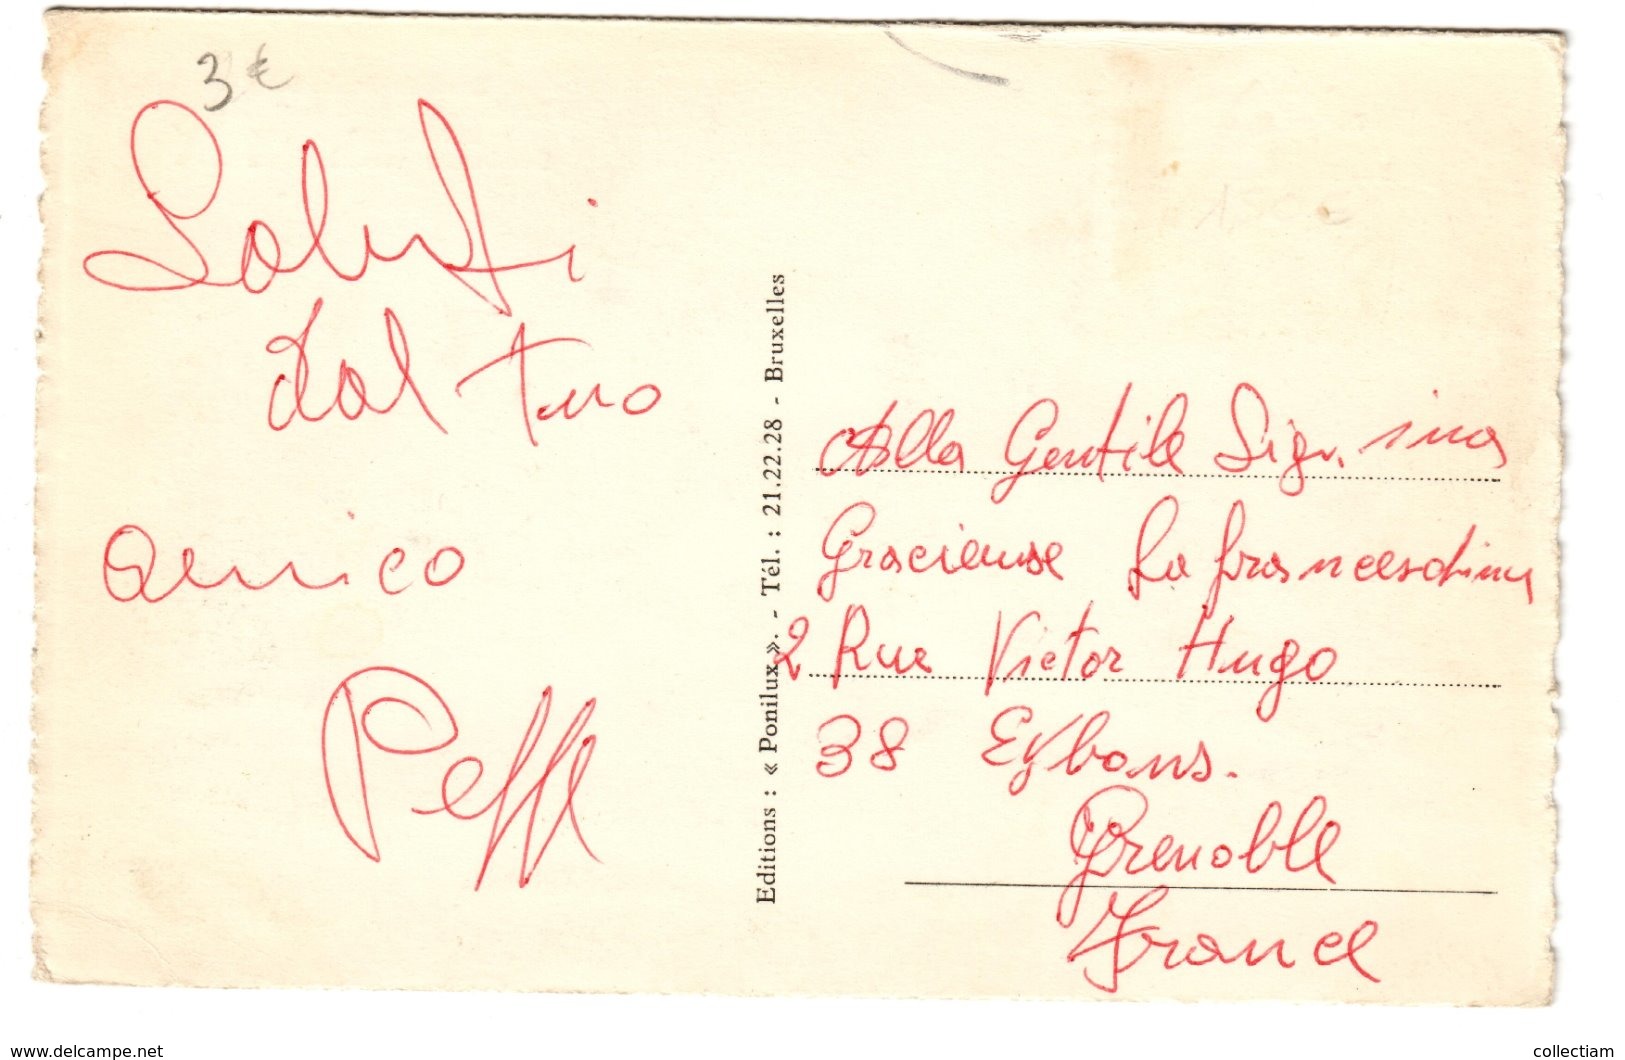 3 €
Saluti
dal tuo
amico
Peppe
Editions : « Ponilux ». - Tél. : 21.22.28 - Bruxelles
Alla Gentile Sigr.ina
Gracieuse La franceschina
2 Rue Victor Hugo
38 Eybens.
Grenoble
France
www.delcampe.net
collectiam